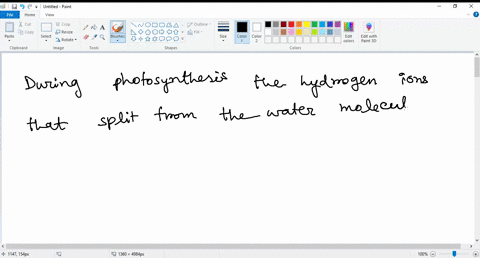 Untitled - Paint
File
Home
View
Paste
Cut
Copy
Select
Crop
Resize
Rotate
Brushes
Outline
Fill
Size
Color 1
Color 2
Edit colors
Edit with Paint 3D
Clipboard
Image
Tools
Shapes
Colors
During photosynthesis the hydrogen ions
that split from the water molecul
1147, 134px
100%